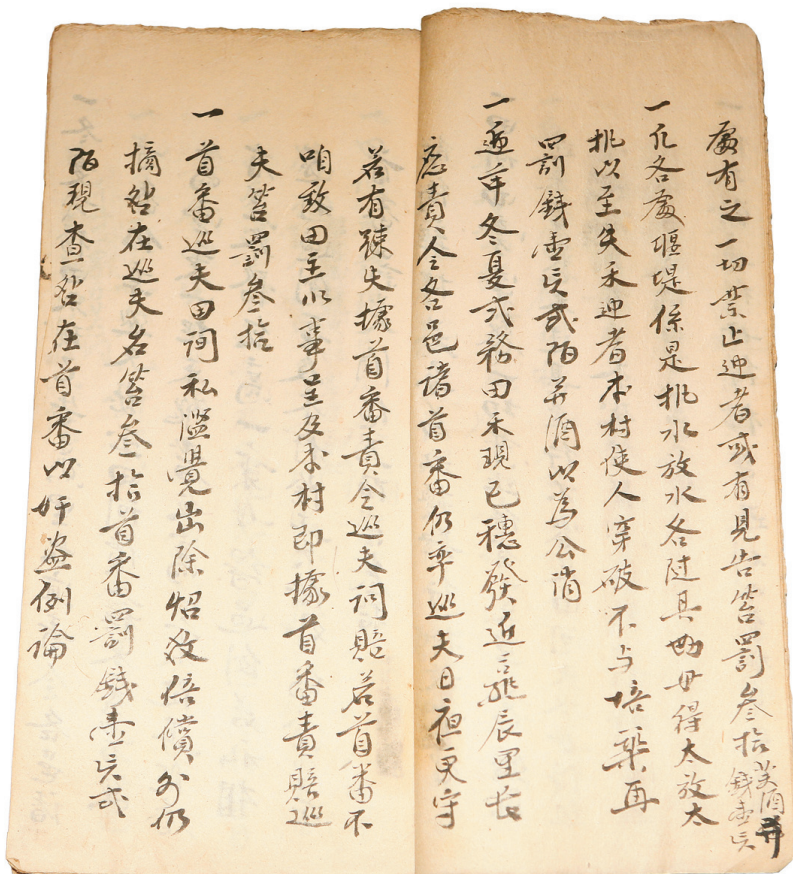 處有之一切禁止迎者或有見告笞罰叁拾芙酒并錢壹貫
一凡各處堰堤係是挑水放水各隨具勘毋得太放太
挑以至失禾迎者本村使人穿破不与培築再
罰錢壹貫貳陌并酒以為公消
一遞年冬夏貳務田禾現已穗發近熟辰里長
應責令各邑諸首番仍率巡夫日夜更守
若有疎失據首番責令巡夫詞賠若首番不
咱致田主以事呈及本村即據首番責賠巡
夫笞罰叁拾
一首番巡夫田詞私濫覺出除炤役倍償外仍
摘咎在巡夫名笞叁拾首番罰錢壹貫貳
陌現查咎在首番以奸盜例論